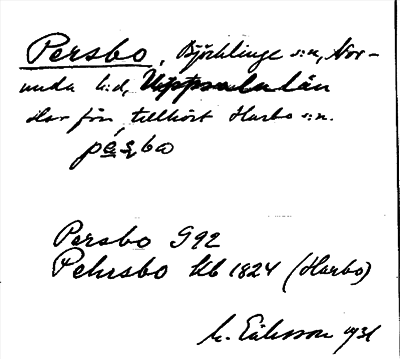 Persbo, Björklinge s:n, Nor-
unda h:d, Uppsala län
Har förr tillhört Harbo s:n.
pé̱ṣbo
Persbo G92
Pehrsbo Hb 1824 (Harbo)
M. Eriksson 1931